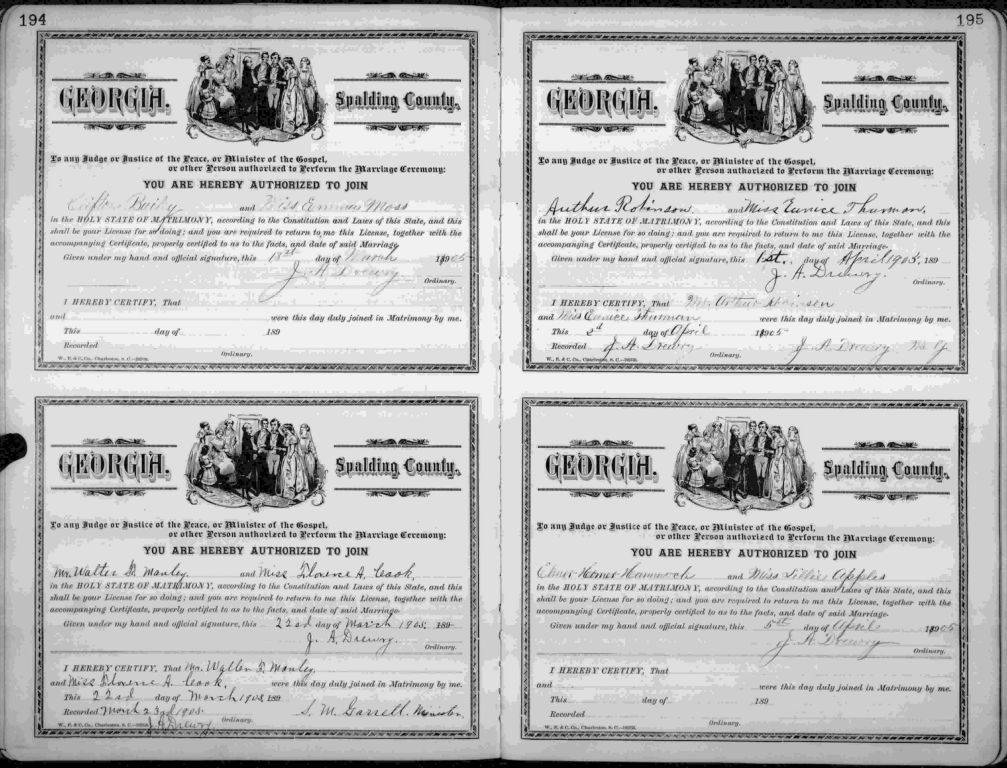 194
GEORGIA, Spalding County.
To any Judge or Justice of the Peace, or Minister of the Gospel,
or other Person authorized to Perform the Marriage Ceremony:
YOU ARE HEREBY AUTHORIZED TO JOIN
and Miss Moss
in the HOLY STATE OF MATRIMONY, according to the Constitution and Laws of this State, and this
shall be your License for so doing; and you are required to return to me this License, together with the
accompanying Certificate, properly certified as to the facts, and date of said Marriage.
Given under my hand and official signature, this 18st day of March 1905
J. A. Drewry
Ordinary.
I HEREBY CERTIFY, That
and were this day duly joined in Matrimony by me.
This day of 189
Recorded
Ordinary.
W., E. & C. Co., Charleston, S. C.
GEORGIA, Spalding County.
To any Judge or Justice of the Peace, or Minister of the Gospel,
or other Person authorized to Perform the Marriage Ceremony:
YOU ARE HEREBY AUTHORIZED TO JOIN
Mr. Walter F. Manley and Miss Florence A. Cook,
in the HOLY STATE OF MATRIMONY, according to the Constitution and Laws of this State, and this
shall be your License for so doing; and you are required to return to me this License, together with the
accompanying Certificate, properly certified as to the facts, and date of said Marriage.
Given under my hand and official signature, this 22nd day of March 1905. 189
J. A. Drewry.
Ordinary.
I HEREBY CERTIFY, That Mr. Walter F. Manley
and Miss Florence A. Cook, were this day duly joined in Matrimony by me.
This 22nd day of March 1905 189
Recorded March 23rd 1905 S. M. Garrell. Minister
J. A. Drewry Ordinary.
W., E. & C. Co., Charleston, S. C.
195
GEORGIA, Spalding County.
To any Judge or Justice of the Peace, or Minister of the Gospel,
or other Person authorized to Perform the Marriage Ceremony:
YOU ARE HEREBY AUTHORIZED TO JOIN
Arthur Robinson and Miss Eunice Thurman,
in the HOLY STATE OF MATRIMONY, according to the Constitution and Laws of this State, and this
shall be your License for so doing; and you are required to return to me this License, together with the
accompanying Certificate, properly certified as to the facts, and date of said Marriage.
Given under my hand and official signature, this 1st. day of April 1905. 189
J. A. Drewry.
Ordinary.
I HEREBY CERTIFY, That Mr. Arthur Robinson
and Miss Eunice Thurman were this day duly joined in Matrimony by me.
This 2d day of April 1905
Recorded J. A. Drewry J. A. Drewry
Ordinary.
W., E. & C. Co., Charleston, S. C.
GEORGIA, Spalding County.
To any Judge or Justice of the Peace, or Minister of the Gospel,
or other Person authorized to Perform the Marriage Ceremony:
YOU ARE HEREBY AUTHORIZED TO JOIN
Homer Hammock and Miss Lillie Apples
in the HOLY STATE OF MATRIMONY, according to the Constitution and Laws of this State, and this
shall be your License for so doing; and you are required to return to me this License, together with the
accompanying Certificate, properly certified as to the facts, and date of said Marriage.
Given under my hand and official signature, this 5st day of April 1905
J. A. Drewry
Ordinary.
I HEREBY CERTIFY, That
and were this day duly joined in Matrimony by me.
This day of 189
Recorded
Ordinary.
W., E. & C. Co., Charleston, S. C.